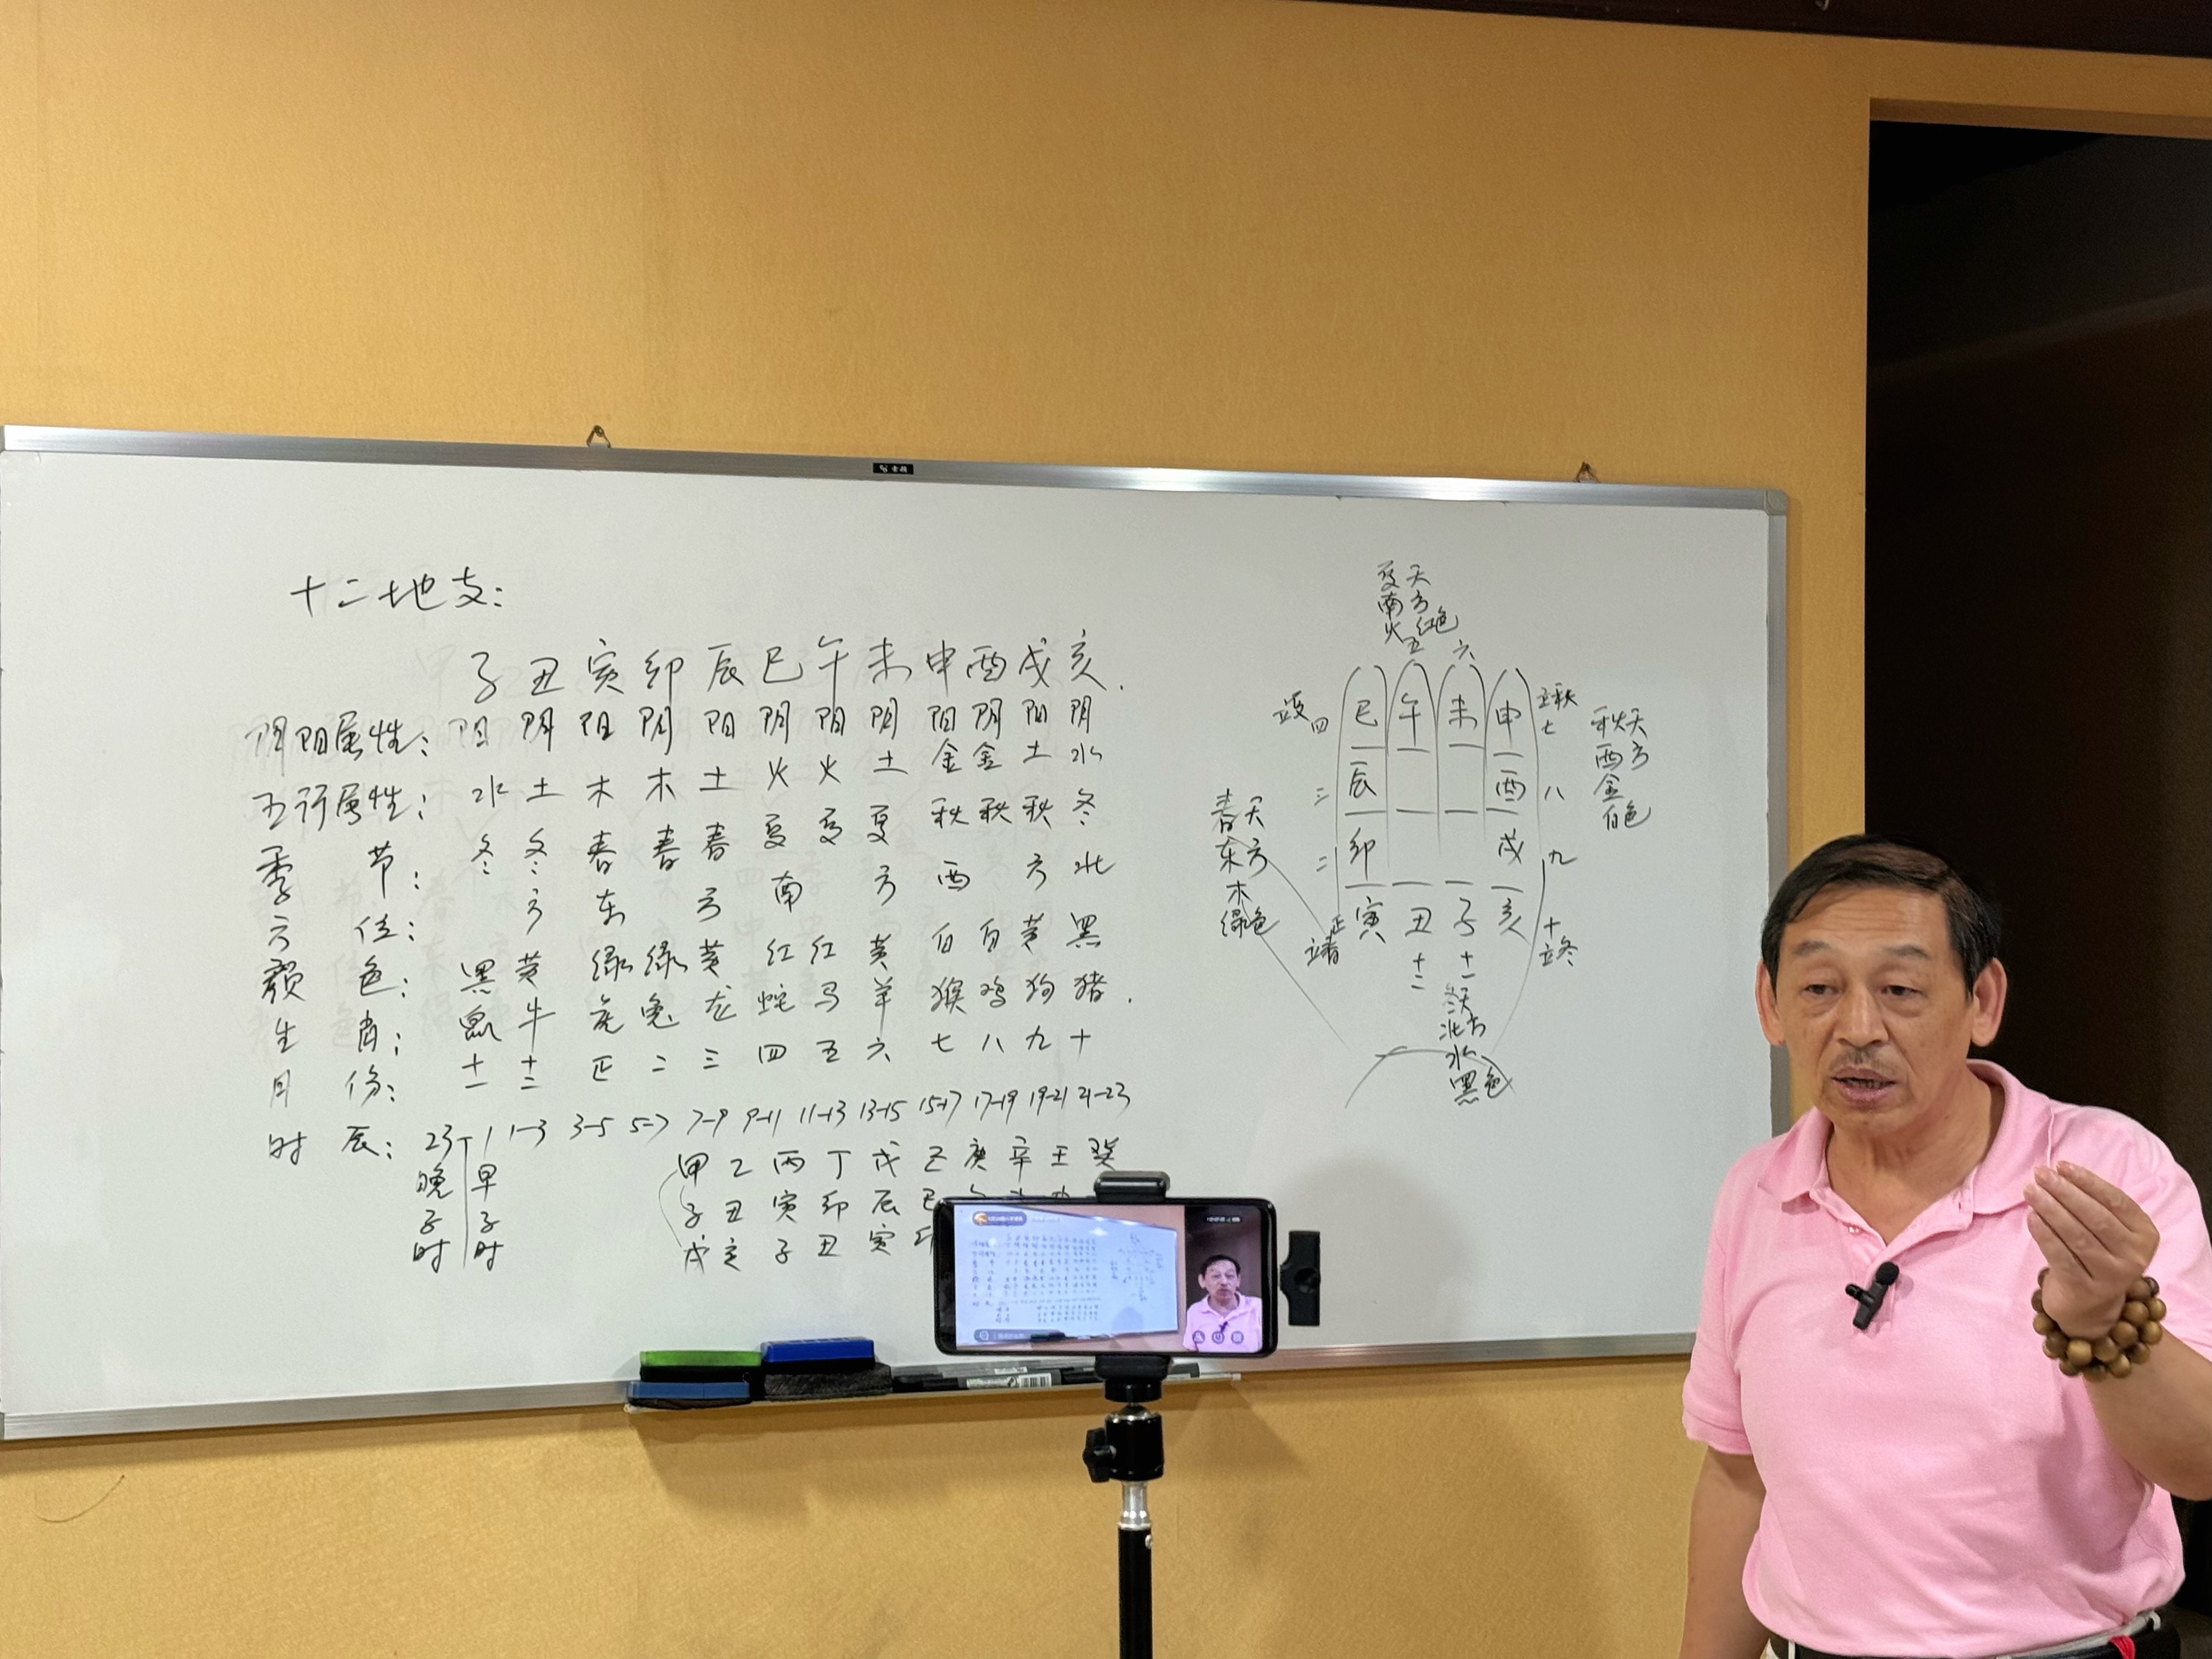 十二地支：
子 丑 寅 卯 辰 巳 午 未 申 酉 戌 亥.
阴阳属性： 阳 阴 阳 阴 阳 阴 阳 阴 阳 阴 阳 阴
五行属性： 水 土 木 木 土 火 火 土 金 金 土 水
季 节： 冬 冬 春 春 春 夏 夏 夏 秋 秋 秋 冬
方 位： 方 东 方 南 方 西 方 北
颜 色： 黑 黄 绿 绿 黄 红 红 黄 白 白 黄 黑
生 肖： 鼠 牛 虎 兔 龙 蛇 马 羊 猴 鸡 狗 猪.
月 份： 十一 十二 正 二 三 四 五 六 七 八 九 十
时 辰： 23-1 1-3 3-5 5-7 7-9 9-11 11-13 13-15 15-17 17-19 19-21 21-23
晚子时 早子时
甲 乙 丙 丁 戊 己 庚 辛 壬 癸
子 丑 寅 卯 辰 巳
戌 亥 子 丑 寅 卯
夏天
南方
火 红色
五 六
立夏 四 巳 午 未 申 立秋 七
三 辰 酉 八
二 卯 戌 九
正 寅 丑 子 亥 十
立春 十二 十一 立冬
春天
东方
木
绿色
秋天
西方
金
白色
冬天
北方
水
黑色